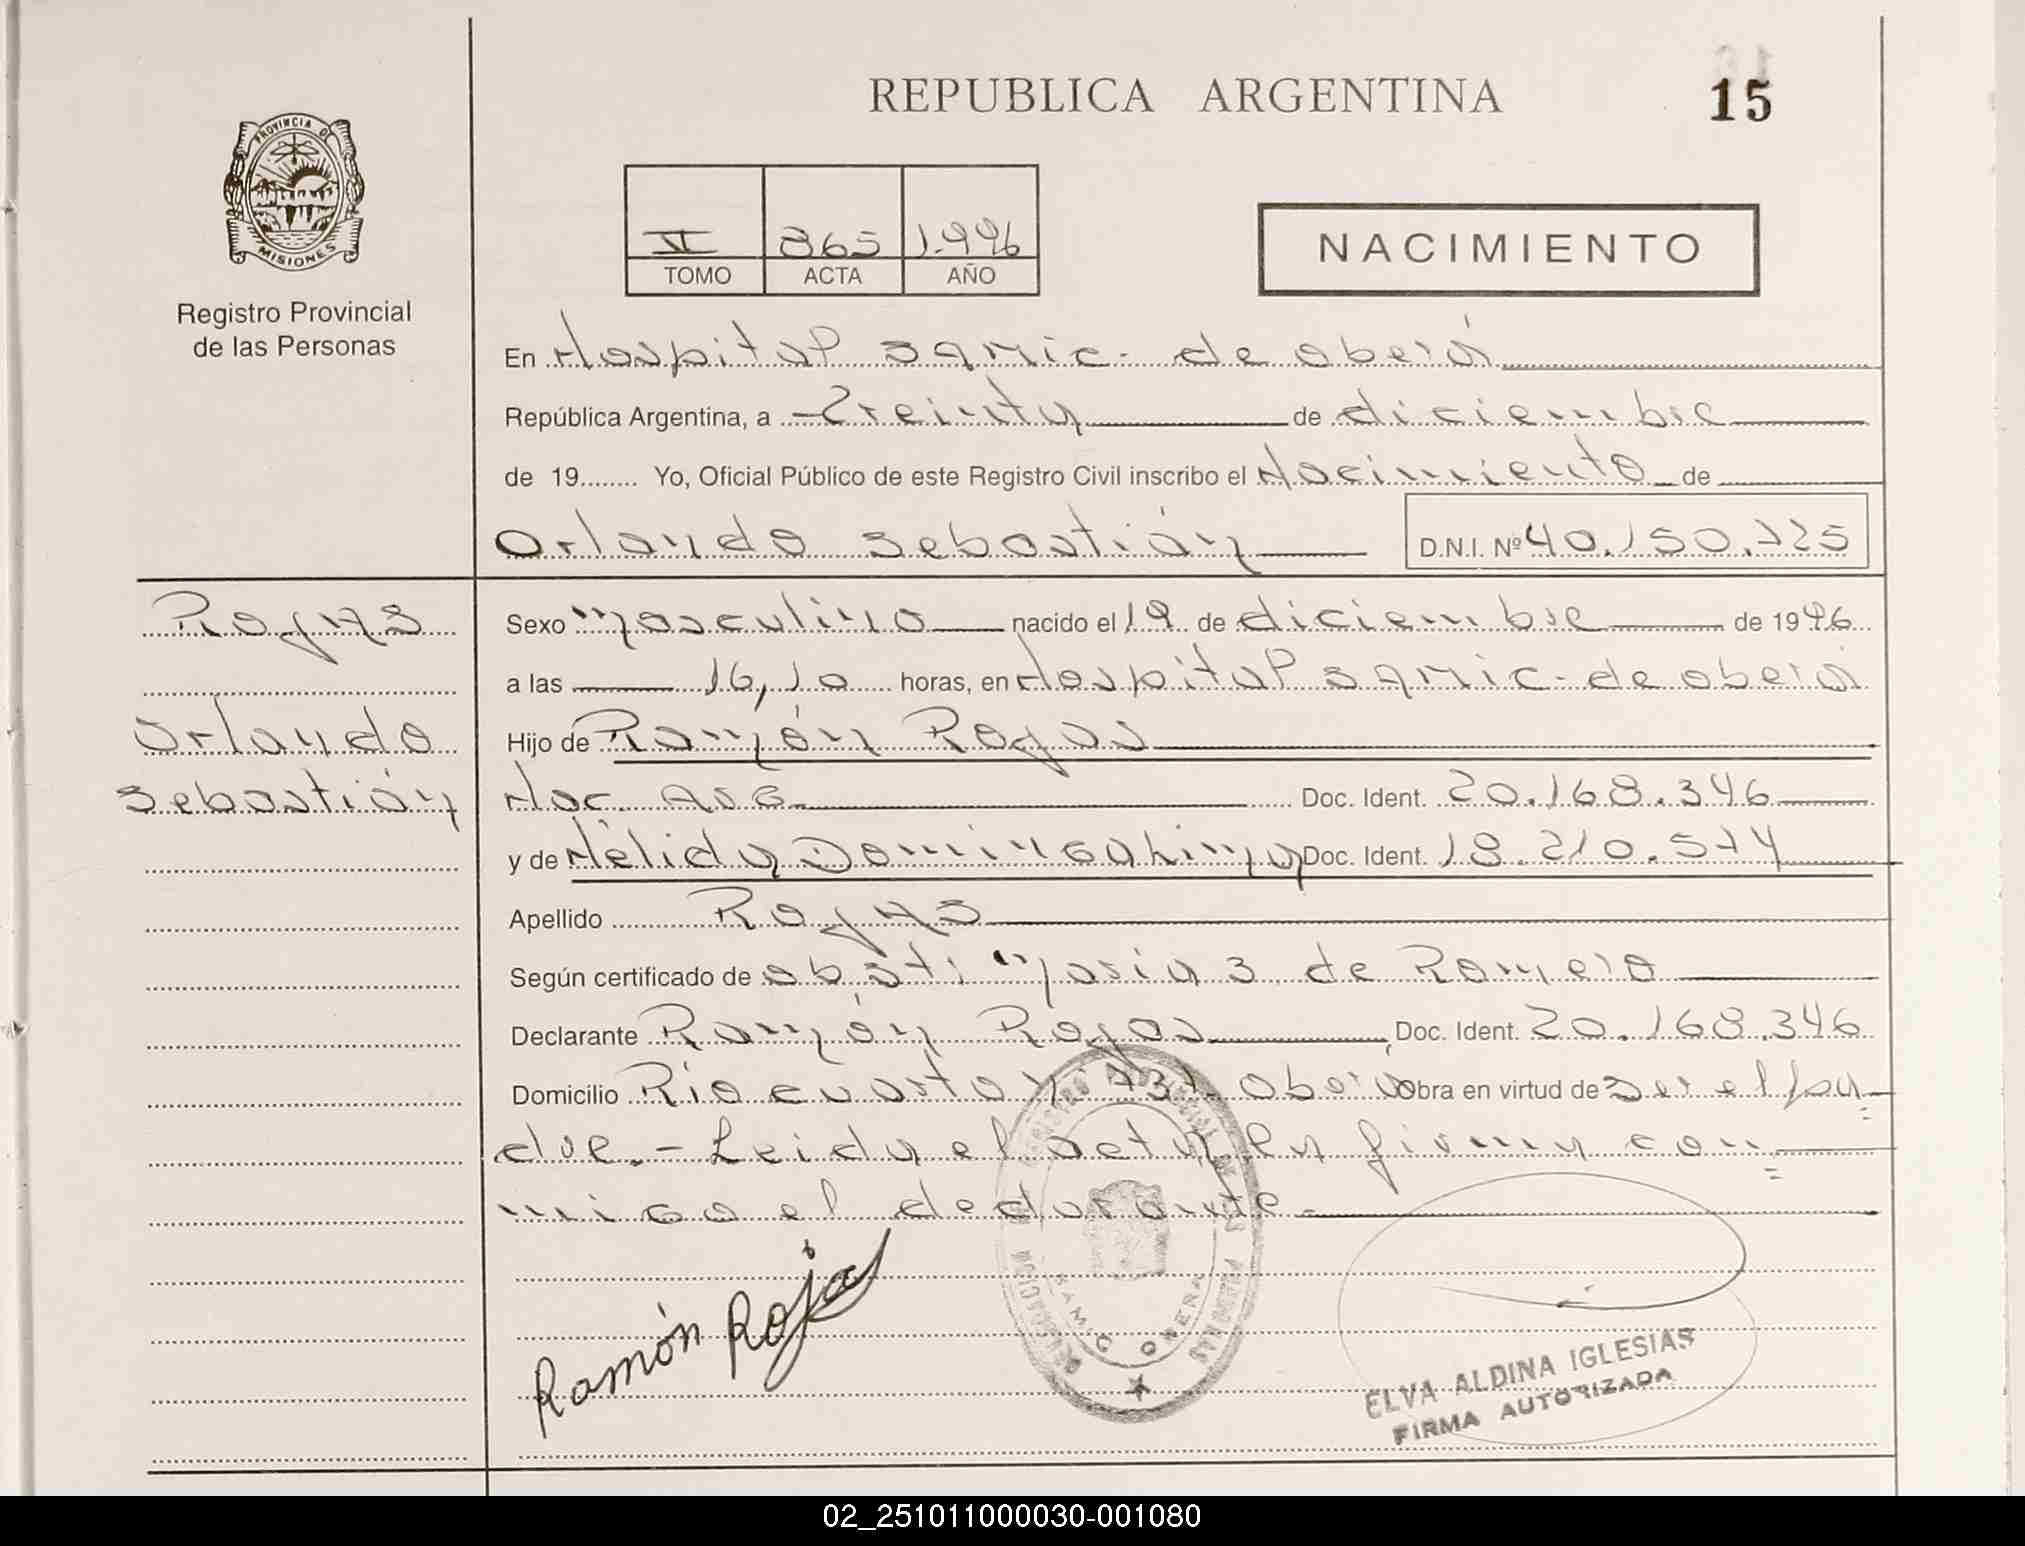 REPUBLICA ARGENTINA
15
PROVINCIA DE
MISIONES
Registro Provincial
de las Personas
865 1.996
TOMO ACTA AÑO
NACIMIENTO
En Hospital Samic. de oberá
República Argentina, a Treinta de diciembre
de 19........ Yo, Oficial Público de este Registro Civil inscribo el Nacimiento de
Orlando Sebastián
D.N.I. Nº 40.150.725
Rojas
Orlando
Sebastián
Sexo Masculino nacido el 19 de diciembre de 1996
a las 16,10 horas, en Hospital Samic. de oberá
Hijo de Ramón Rojas
Nac. ARG. Doc. Ident. 20.168.346
y de Nélida Doc. Ident. 18.210.574
Apellido Rojas
Según certificado de obst: María S. de Romero
Declarante Ramón Rojas Doc. Ident. 20.168.346
Domicilio Rio cuarto oberá Obra en virtud de ser el pa-
dre.- Leida el acta la firma con-
migo el declarante.-
Ramón Rojas
REGISTRO PROVINCIAL DE LAS PERSONAS
DELEGACION
SAMIC OBERA
ELVA ALDINA IGLESIAS
FIRMA AUTORIZADA
02_251011000030-001080